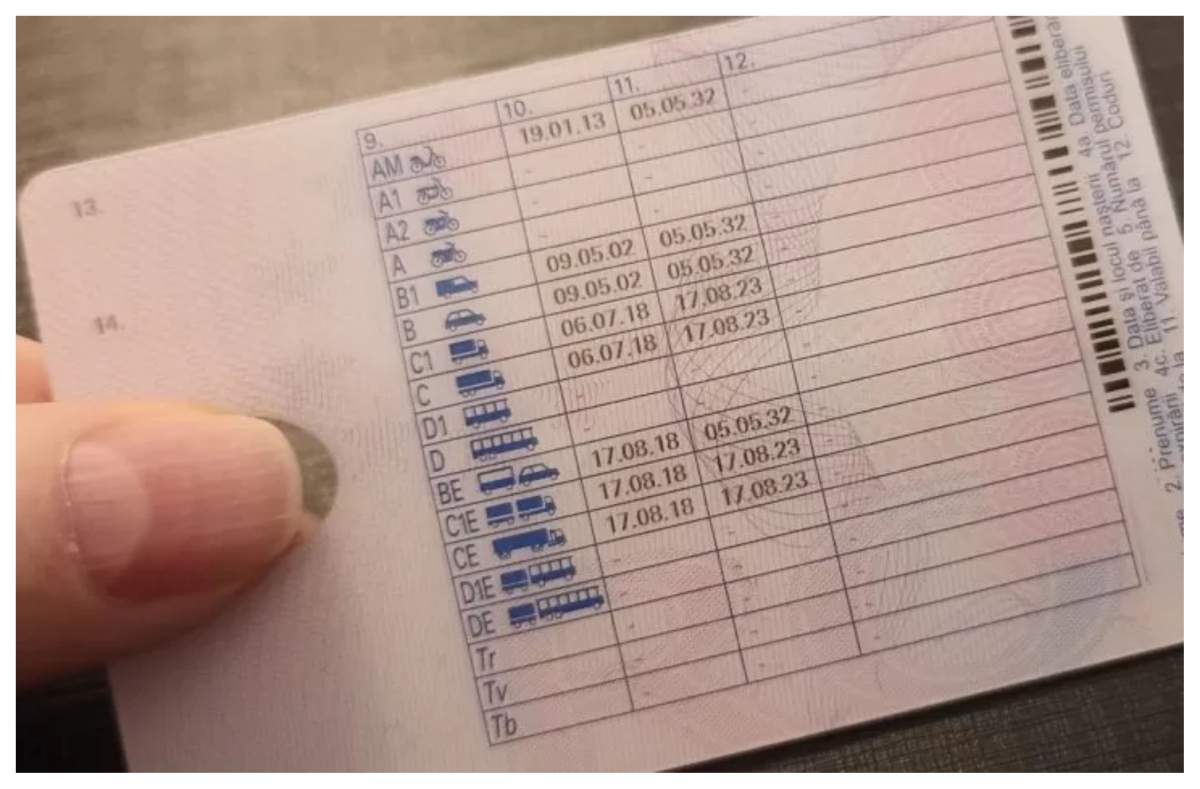 13.
14.
9. 10. 11. 12.
AM 19.01.13 05.05.32 -
A1 - - -
A2 - - -
A - - -
B1 09.05.02 05.05.32 -
B 09.05.02 05.05.32 -
C1 06.07.18 17.08.23 -
C 06.07.18 17.08.23 -
D1 - - -
D - - -
BE 17.08.18 05.05.32 -
C1E 17.08.18 17.08.23 -
CE 17.08.18 17.08.23 -
D1E - - -
DE - - -
Tr - - -
Tv - - -
Tb - - -
2. Prenume 3. Data și locul nașterii 4a Data
expirării 4c. Eliberat de 5. Numărul permisului
de la 11. Valabil până la 12. Coduri